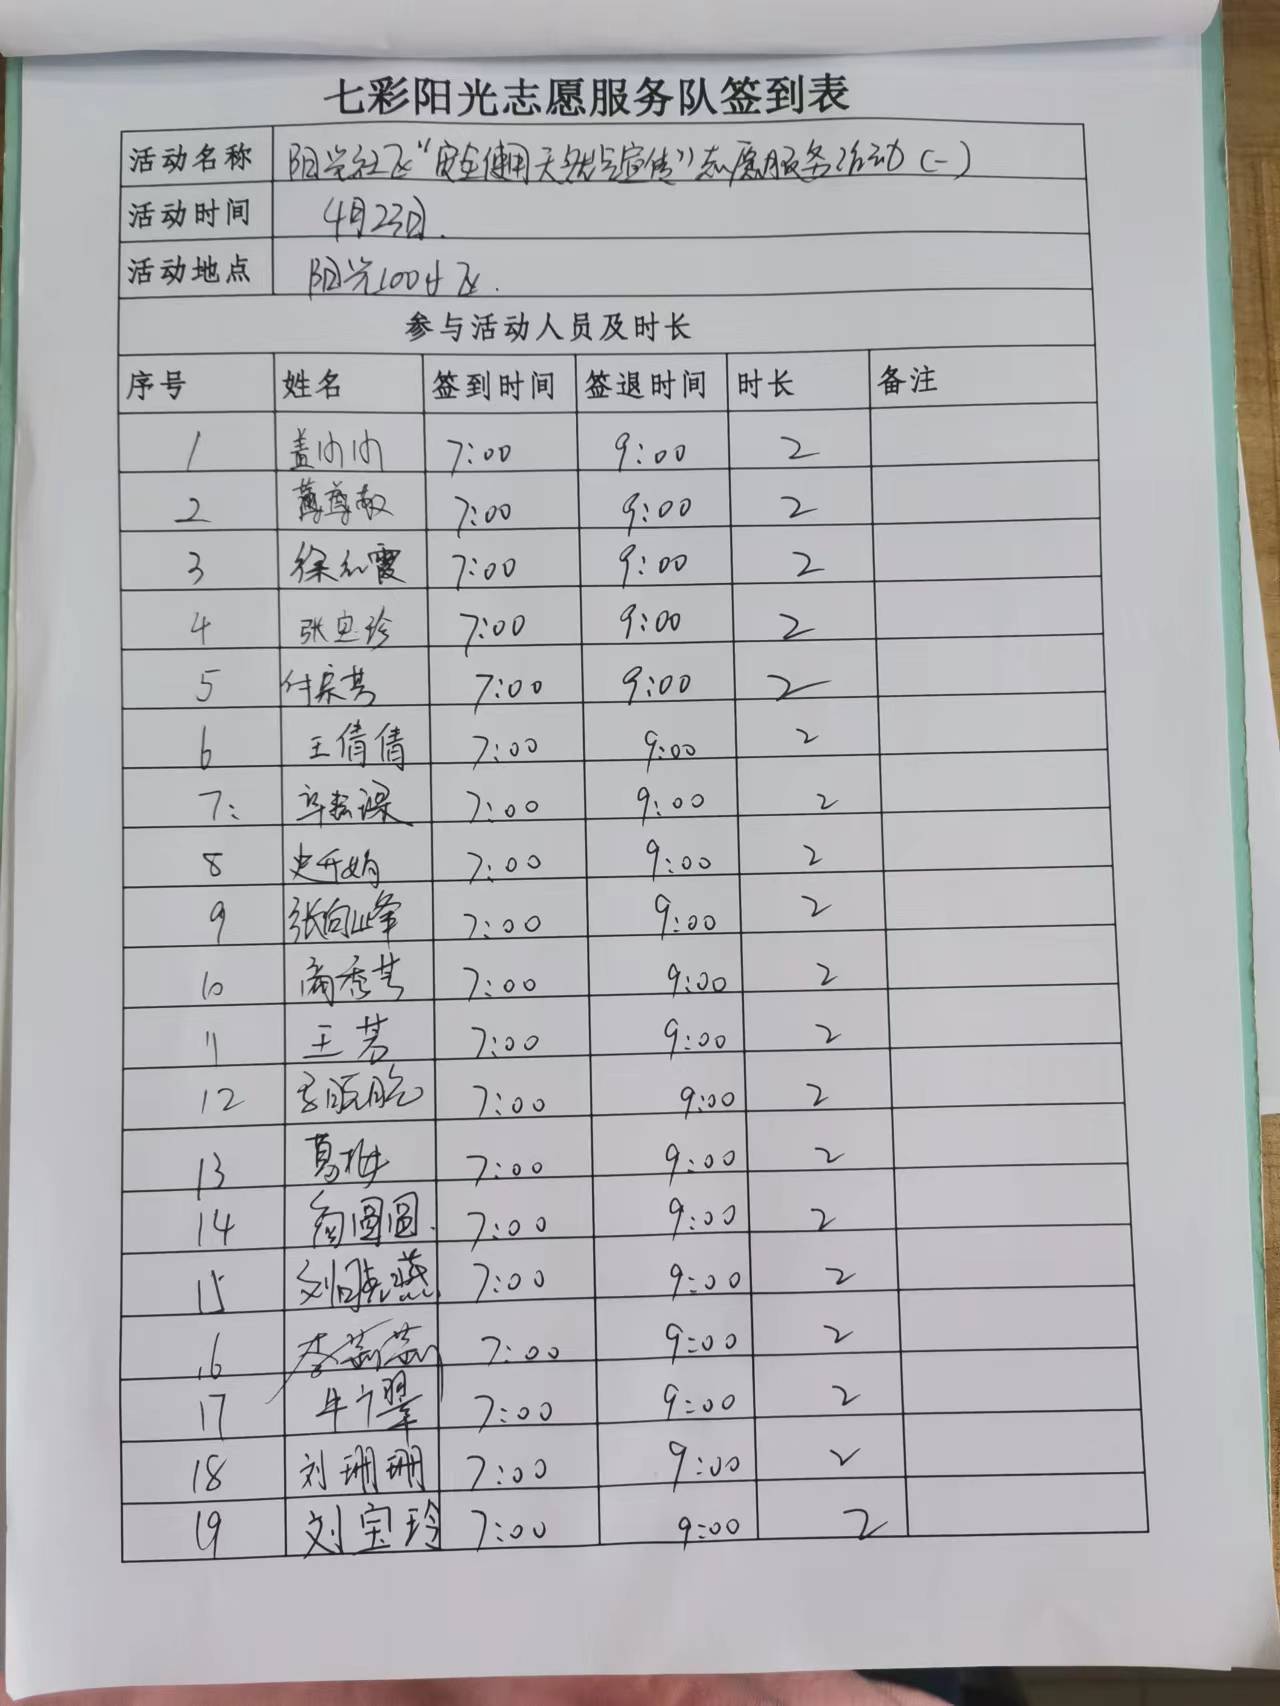 七彩阳光志愿服务队签到表
活动名称 阳光社区“安全使用天然气宣传”志愿服务活动(一)
活动时间 4月23日.
活动地点 阳光100小区.
参与活动人员及时长
序号 姓名 签到时间 签退时间 时长 备注
1 盖 7:00 9:00 2
2 7:00 9:00 2
3 徐红霞 7:00 9:00 2
4 张宝珍 7:00 9:00 2
5 7:00 9:00 2
6 王倩倩 7:00 9:00 2
7: 7:00 9:00 2
8 史 7:00 9:00 2
9 张向峰 7:00 9:00 2
10 7:00 9:00 2
11 王芳 7:00 9:00 2
12 7:00 9:00 2
13 葛梅 7:00 9:00 2
14 圆圆. 7:00 9:00 2
15 刘 燕 7:00 9:00 2
16 李莉莉 7:00 9:00 2
17 牛 翠 7:00 9:00 2
18 刘珊珊 7:00 9:00 2
19 刘宝玲 7:00 9:00 2